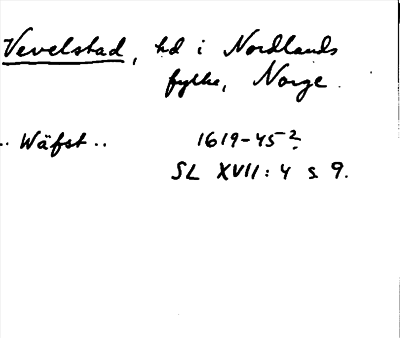 Vevelstad, hd i Nordlands
fylke, Norge.
.. Wäfst .. 1619-45?
SL XVII: 4 s 9.